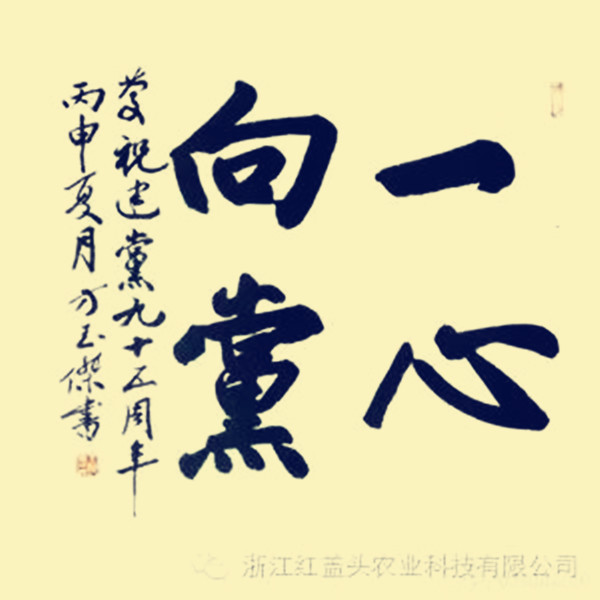 一心
向黨
慶祝建黨九十五周年
丙申夏月方玉傑書
浙江红盖头农业科技有限公司